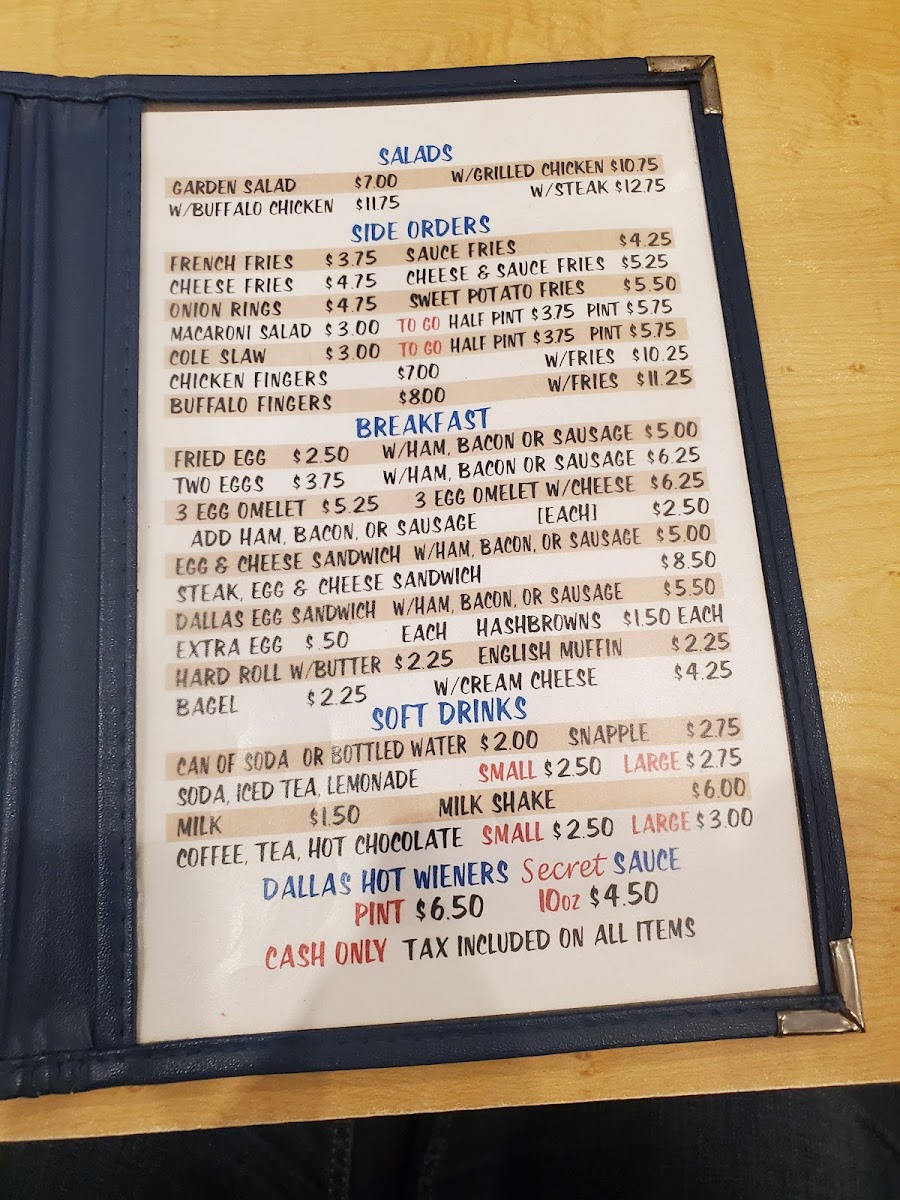 SALADS
GARDEN SALAD $7.00 W/GRILLED CHICKEN $10.75
W/BUFFALO CHICKEN $11.75 W/STEAK $12.75
SIDE ORDERS
FRENCH FRIES $3.75 SAUCE FRIES $4.25
CHEESE FRIES $4.75 CHEESE & SAUCE FRIES $5.25
ONION RINGS $4.75 SWEET POTATO FRIES $5.50
MACARONI SALAD $3.00 TO GO HALF PINT $3.75 PINT $5.75
COLE SLAW $3.00 TO GO HALF PINT $3.75 PINT $5.75
CHICKEN FINGERS $7.00 W/FRIES $10.25
BUFFALO FINGERS $8.00 W/FRIES $11.25
BREAKFAST
FRIED EGG $2.50 W/HAM, BACON OR SAUSAGE $5.00
TWO EGGS $3.75 W/HAM, BACON OR SAUSAGE $6.25
3 EGG OMELET $5.25 3 EGG OMELET W/CHEESE $6.25
ADD HAM, BACON, OR SAUSAGE [EACH] $2.50
EGG & CHEESE SANDWICH W/HAM, BACON, OR SAUSAGE $5.00
STEAK, EGG & CHEESE SANDWICH $8.50
DALLAS EGG SANDWICH W/HAM, BACON, OR SAUSAGE $5.50
EXTRA EGG $.50 EACH HASHBROWNS $1.50 EACH
HARD ROLL W/BUTTER $2.25 ENGLISH MUFFIN $2.25
BAGEL $2.25 W/CREAM CHEESE $4.25
SOFT DRINKS
CAN OF SODA OR BOTTLED WATER $2.00 SNAPPLE $2.75
SODA, ICED TEA, LEMONADE SMALL $2.50 LARGE $2.75
MILK $1.50 MILK SHAKE $6.00
COFFEE, TEA, HOT CHOCOLATE SMALL $2.50 LARGE $3.00
DALLAS HOT WIENERS Secret SAUCE
PINT $6.50 10oz $4.50
CASH ONLY TAX INCLUDED ON ALL ITEMS